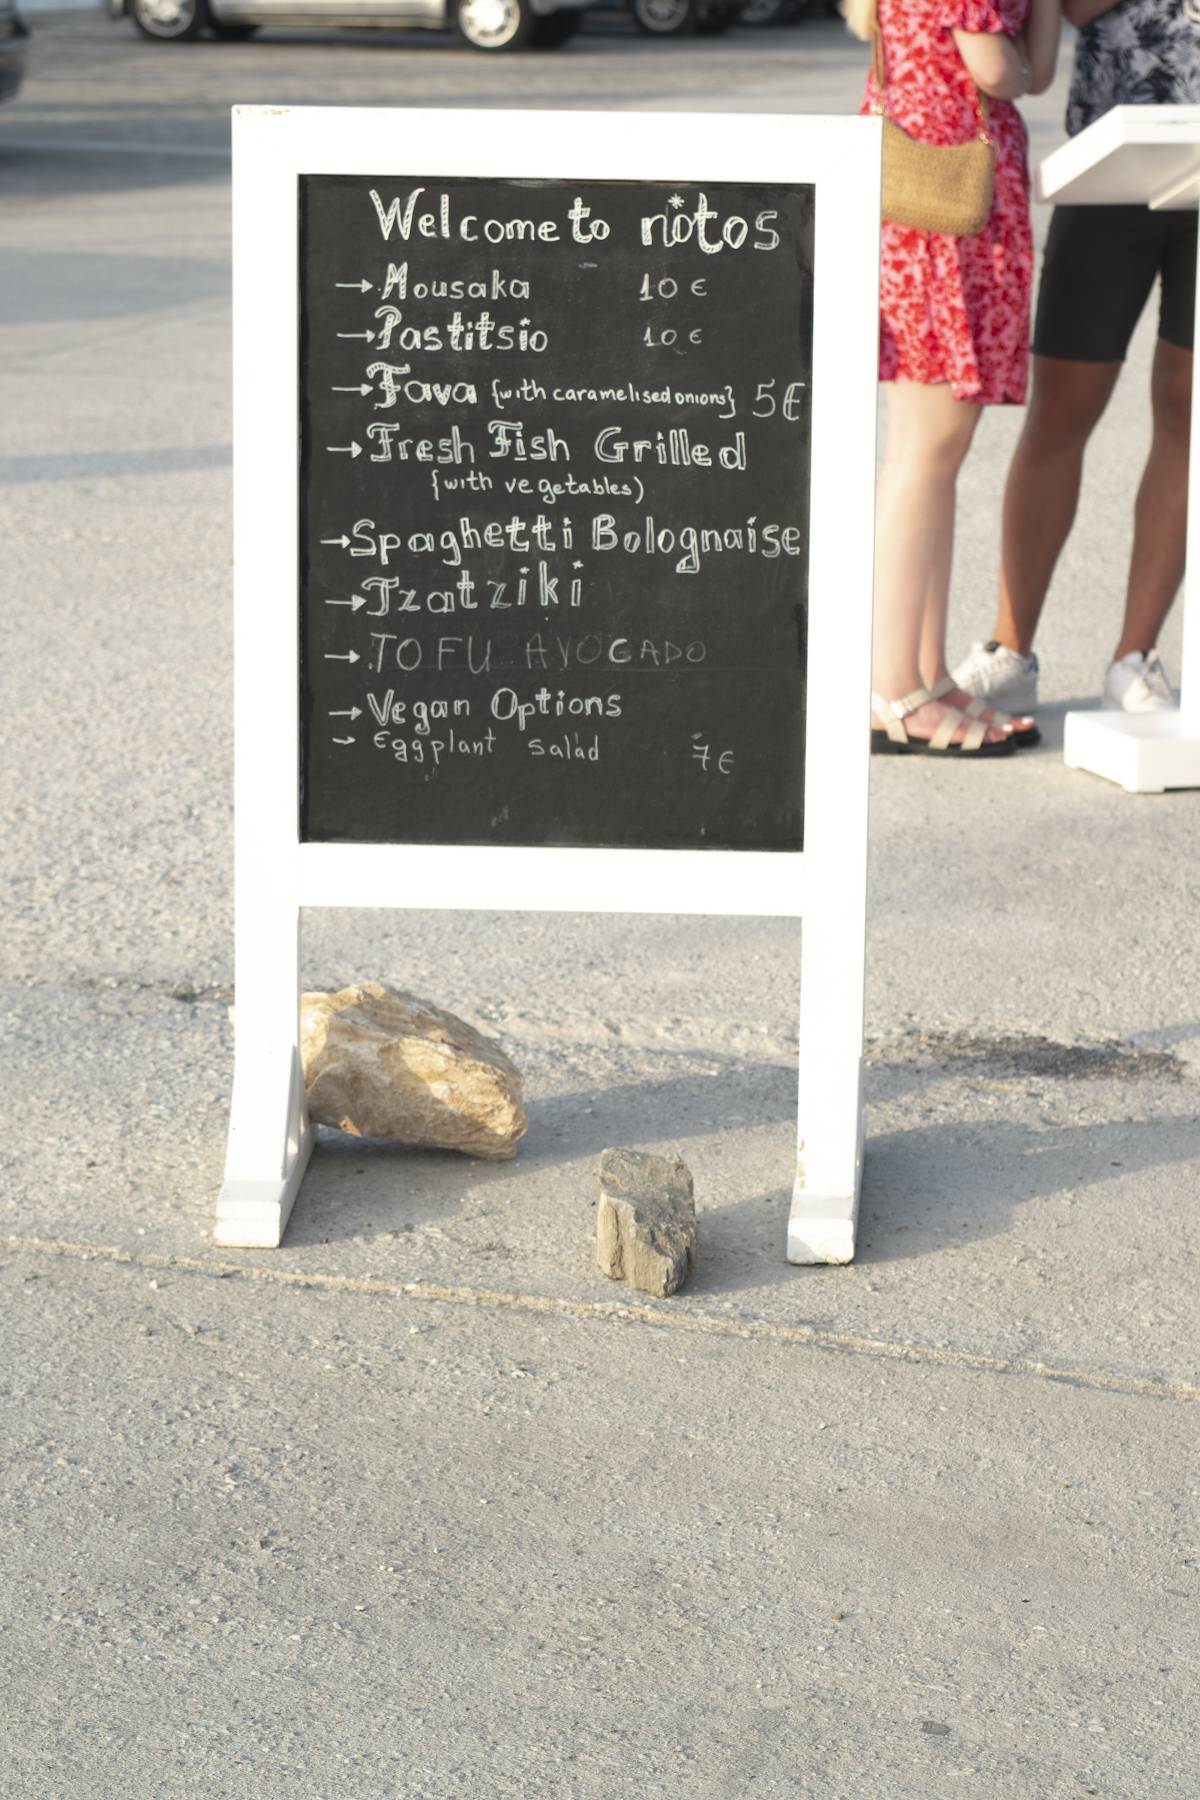 Welcome to notos
→ Mousaka 10 €
→ Pastitsio 10 €
→ Fava {with caramelised onions} 5€
→ Fresh Fish Grilled
{with vegetables)
→ Spaghetti Bolognaise
→ Tzatziki
→ TOFU AVOCADO
→ Vegan Options
→ Eggplant salad 7€